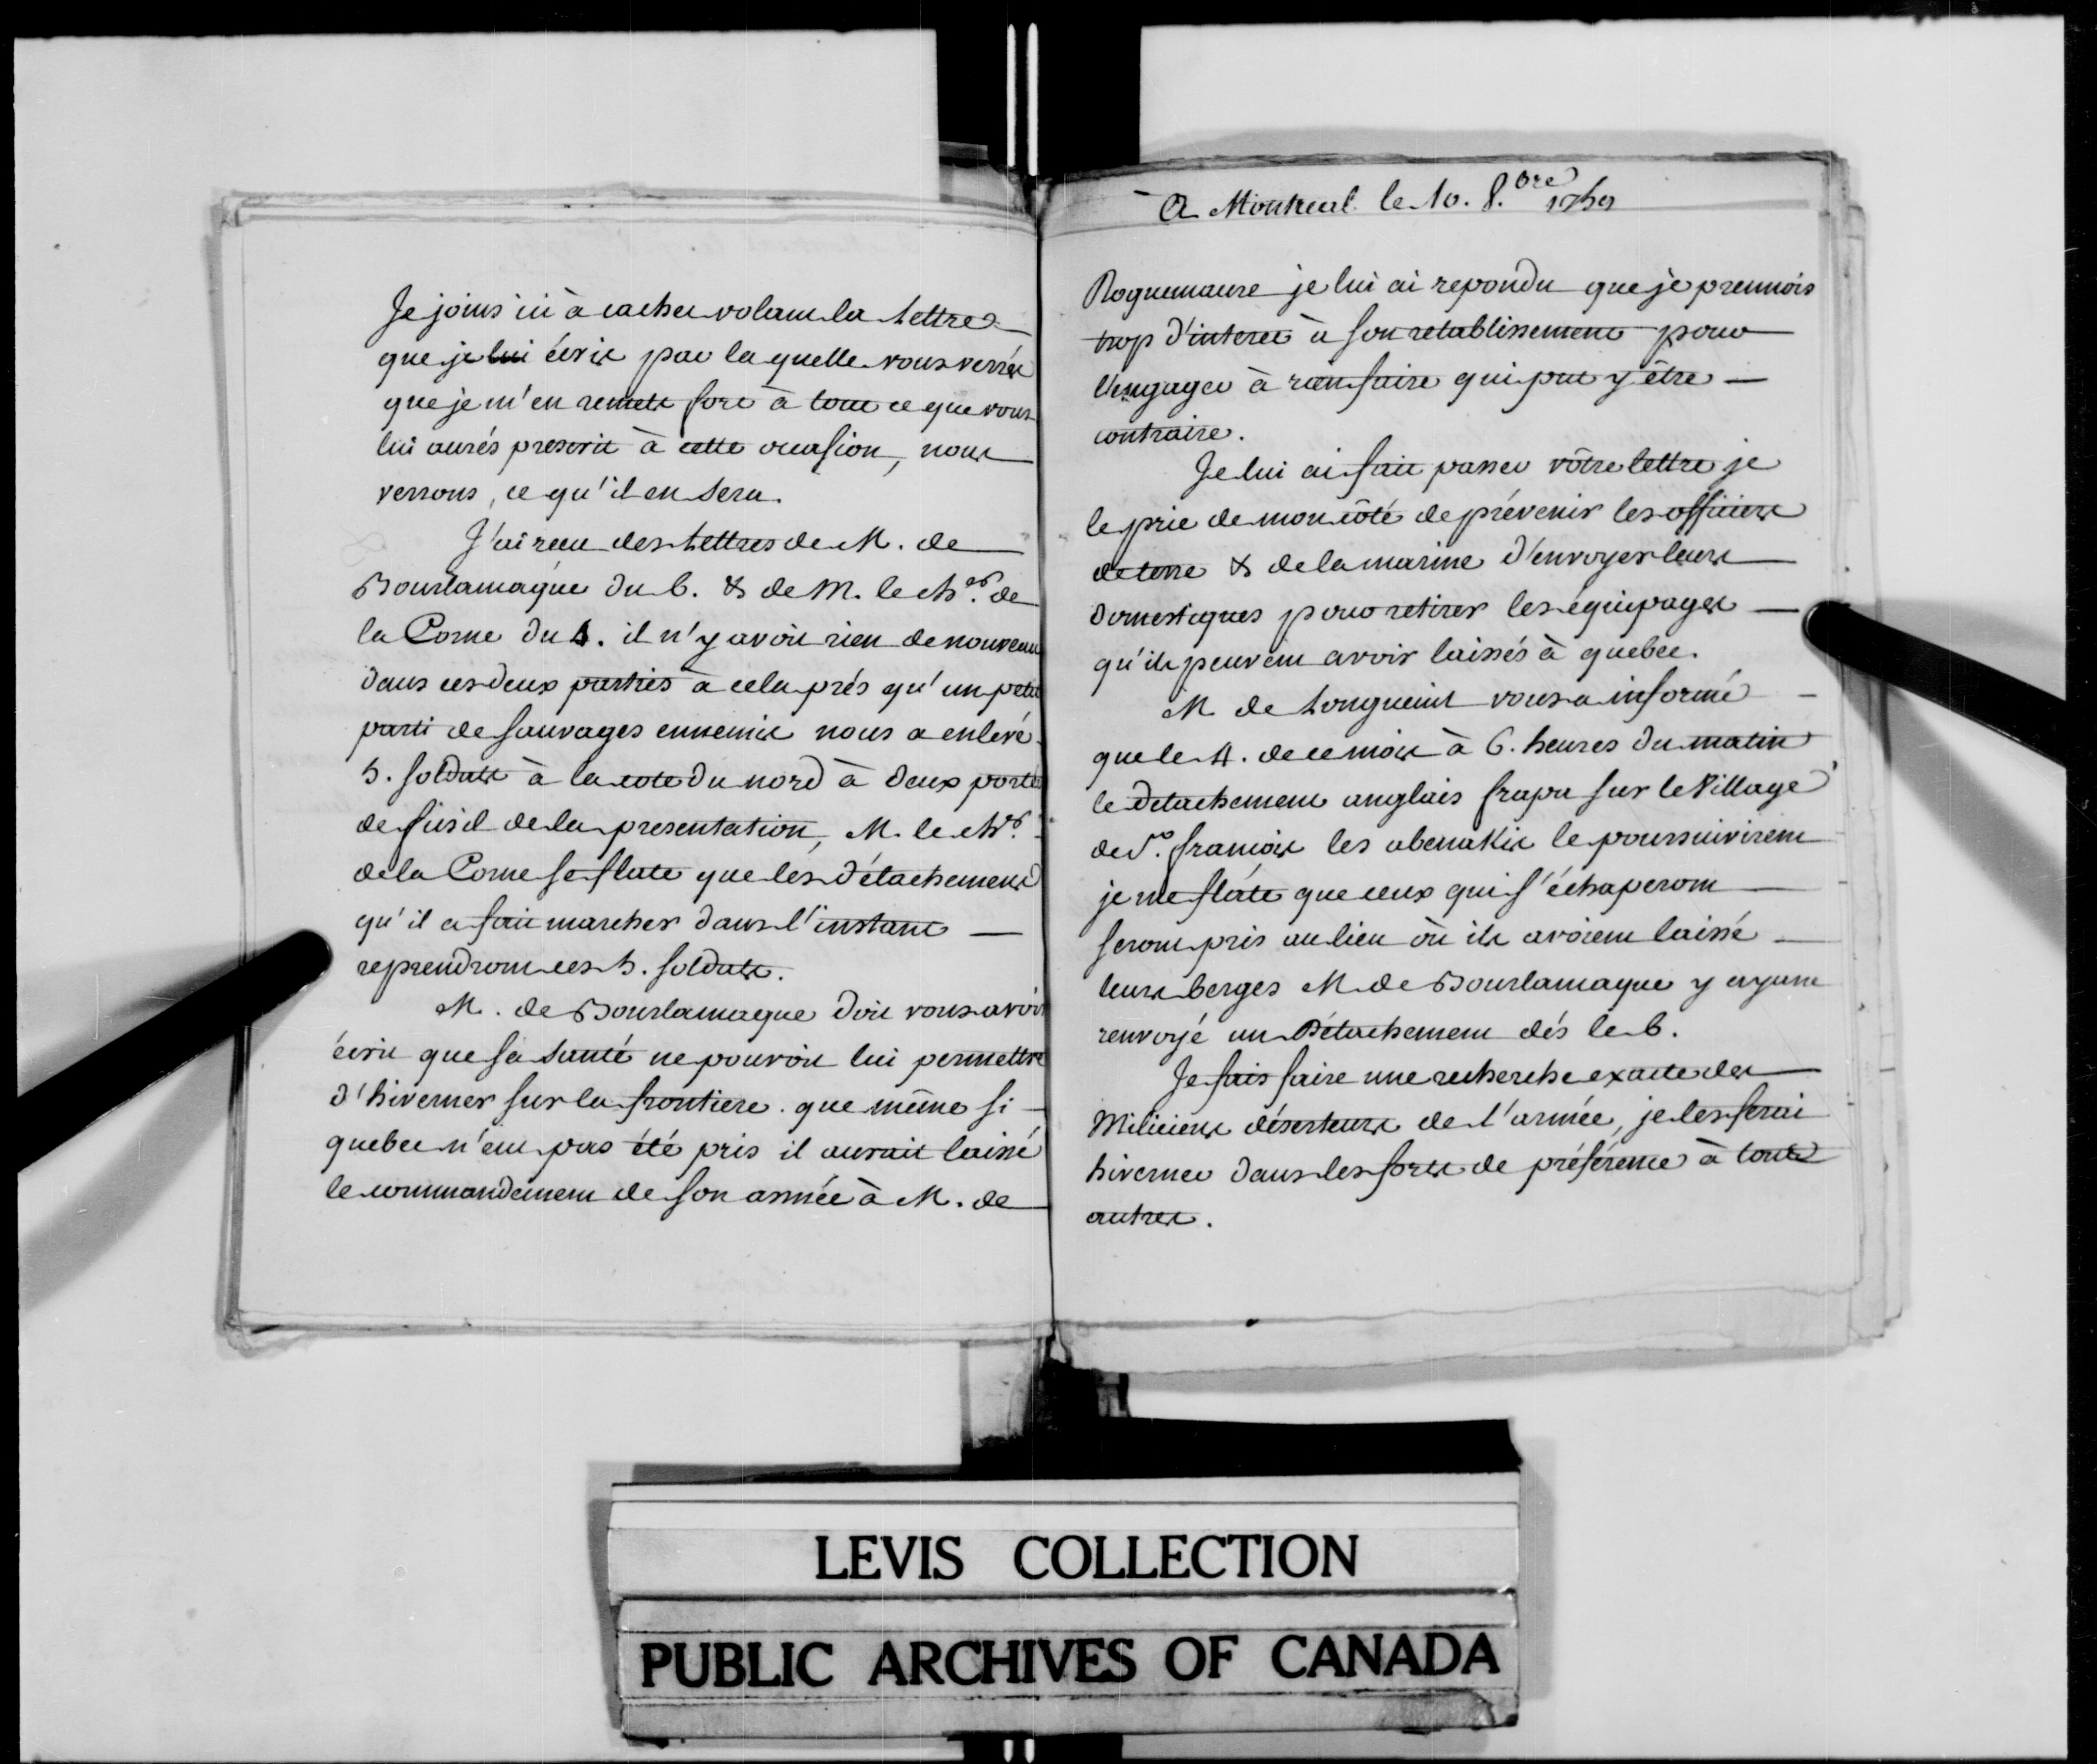 Je joins ici à cachet volant la Lettre
que je lui écris par la quelle vous verrés
que je m'en remets fort à tout ce que vous
lui aurés prescrit à cette occasion, nous
verrons, ce qu'il en sera.
J'ai reçu des Lettres de M. de
Bourlamaque du 6. & de M. le Ch.er de
la Corne du 4. il n'y avoit rien de nouveau
dans ces deux parties à cela prés qu'un petit
parti de sauvages ennemis nous a enlevé
5. soldats à la cote du nord à deux portés
de fusil de la presentation, M. le Ch.er
de la Corne se flate que les détachements
qu'il a fait marcher dans l'instant
reprendront ces 5. soldats.
M. de Bourlamaque doit vous avoir
écrit que sa santé ne pouvoit lui permettre
d'hiverner sur la frontiere. que même si
quebec n'eut pas été pris il aurait laissé
le commandement de son armée à M. de
A Montreal le 10. 8.bre 1759
Roquemaure je lui ai repondu que je prennois
trop d'interet à son retablissement pour
l'engager à rien faire qui put y être
contraire.
Je lui ai fait passer vôtre lettre je
le prie de mon côté de prévenir les officiers
de terre & de la marine d'envoyer leurs
domestiques pour retirer les équipages
qu'ils peuvent avoir laissés à quebec.
M de Longueuil vous a informé
que le 4. de ce mois à 6. heures du matin
le detachement anglais frapa sur le Village
de S.t francois les abenakis le poursuivirent
je me flâte que ceux qui s'échaperont
seront pris au lieu où ils avoient laissé
leurs berges M de Bourlamaque y ayant
renvoyé un Détachement dés le 6.
Je fais faire une recherche exacte des
Miliciens déserteurs de l'armée, je les ferai
hiverner dans les forts de préférence à tout
autres.
LEVIS COLLECTION
PUBLIC ARCHIVES OF CANADA